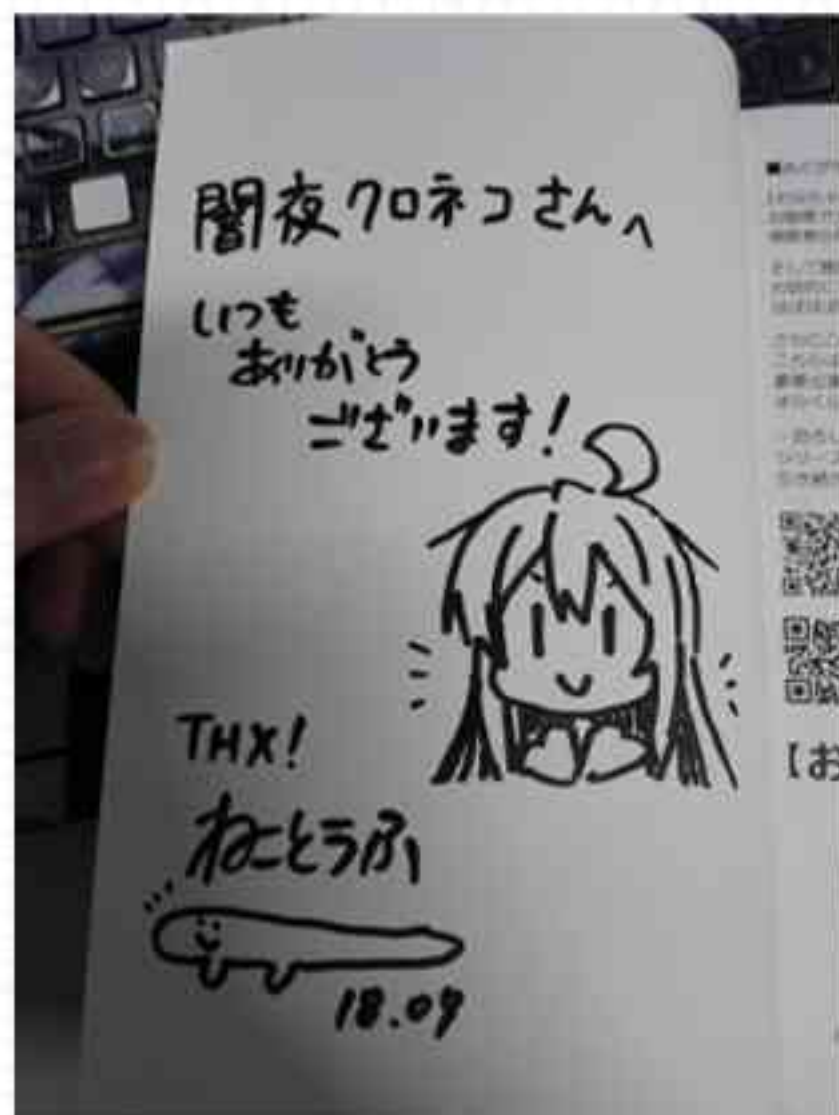 闇夜クロネコさんへ
いつも
ありがとう
ございます!
THX!
ねことうふ
18.09
【お